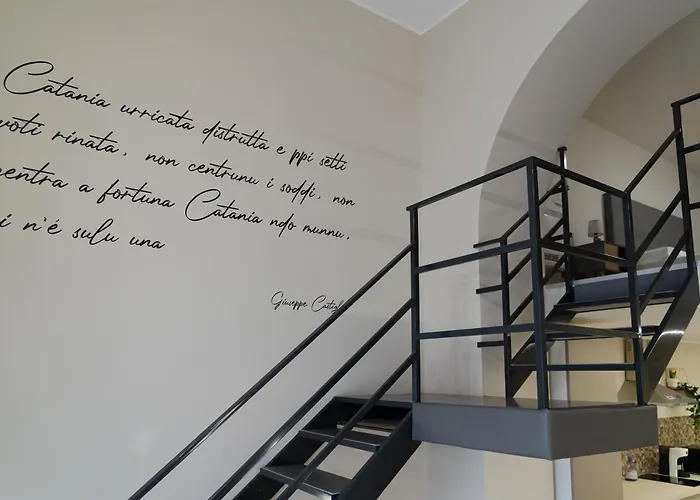 Catania urricata distrutta e ppi setti
voti rinata, non centrunu i soddi, non
centra a fortuna Catania ndo munnu,
i n'é sulu una
Giuseppe